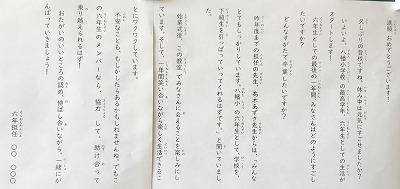 進級、おめでとうございます!
久しぶりの登校ですね。休み中は元気にすごせましたか?
いよいよ、八幡小学校の最高学年、六年生としての生活が
スタートします!
六年生としての最後の一年間、みなさんはどのようにすごし
たいですか?
どんなすがたで卒業したいですか?
昨年度までの担任の先生、高木あずさ先生からは、「みんな
とてもしっかりしています。八幡小の六年生として、学校を、
下級生を、引っぱっていってくれるはずです。」と聞いていまし
た。
始業式後、この教室でみなさんに会えることを楽しみにし
ています。そして、一年間笑い合いながら楽しく生活できるこ
とにワクワクしています。
不安なことも、もしかしたらあるかもしれませんね。でもこ
の六年生のメンバーなら、協力して、助け合って
乗り越えられるはず!
おたがいのいいところを認め、伸ばし合いながら、一緒にが
んばっていきましょう!
六年担任 〇〇 〇〇〇